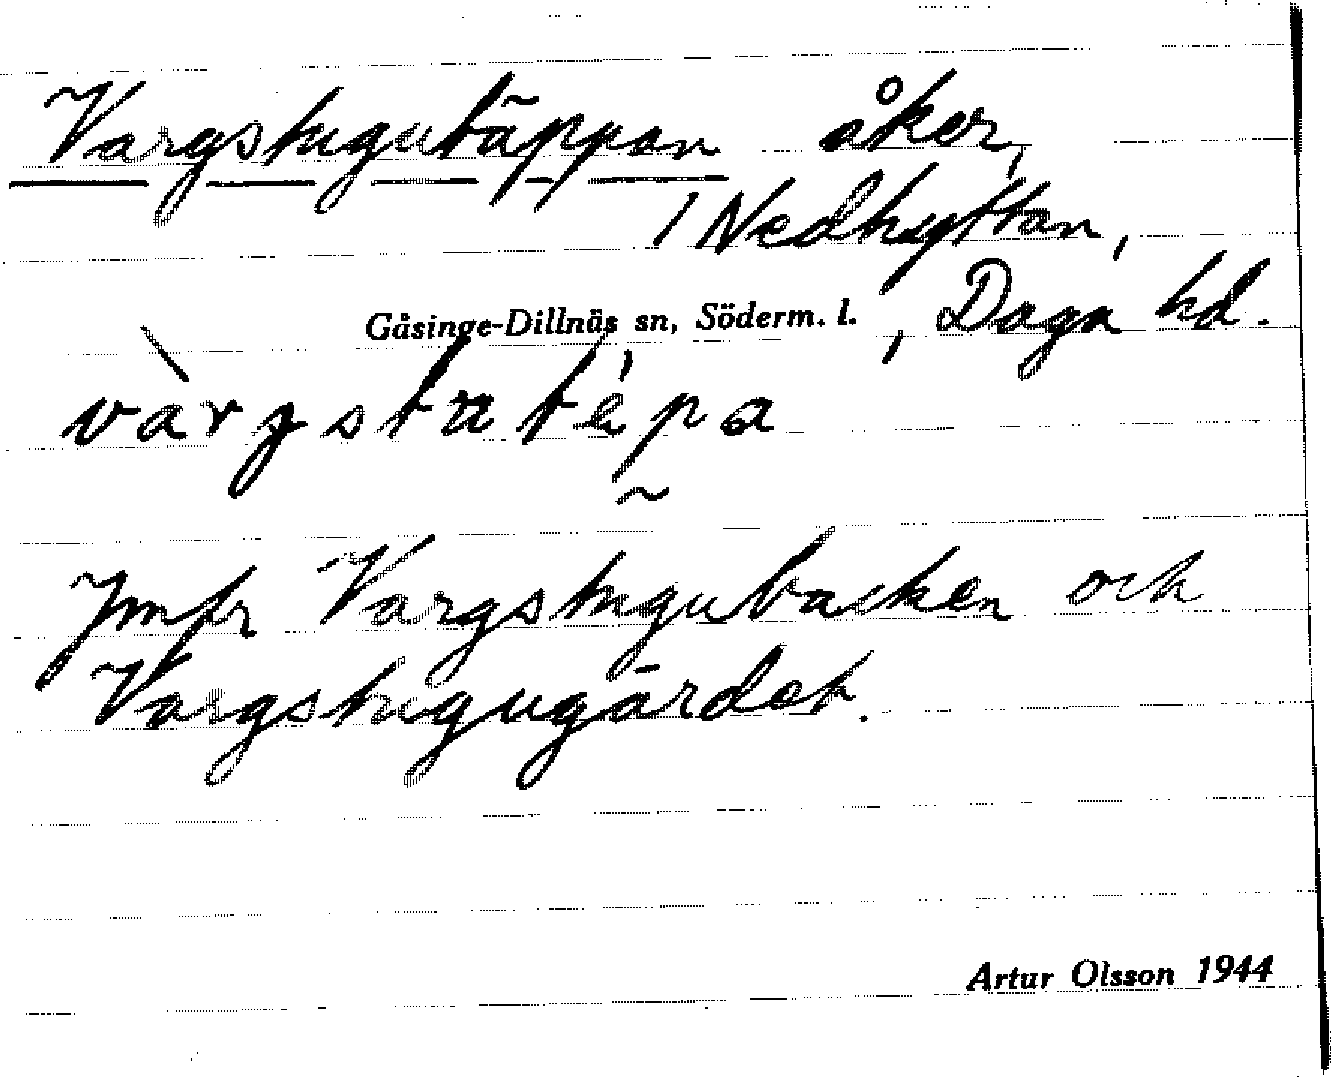 Vargstugutäppan åker,
/ Nedhyttan,
Gåsinge-Dillnäs sn, Söderm. l. , Daga hd.
Jmfr Vargstugubacken och
Vargstugugärdet.
Artur Olsson 1944